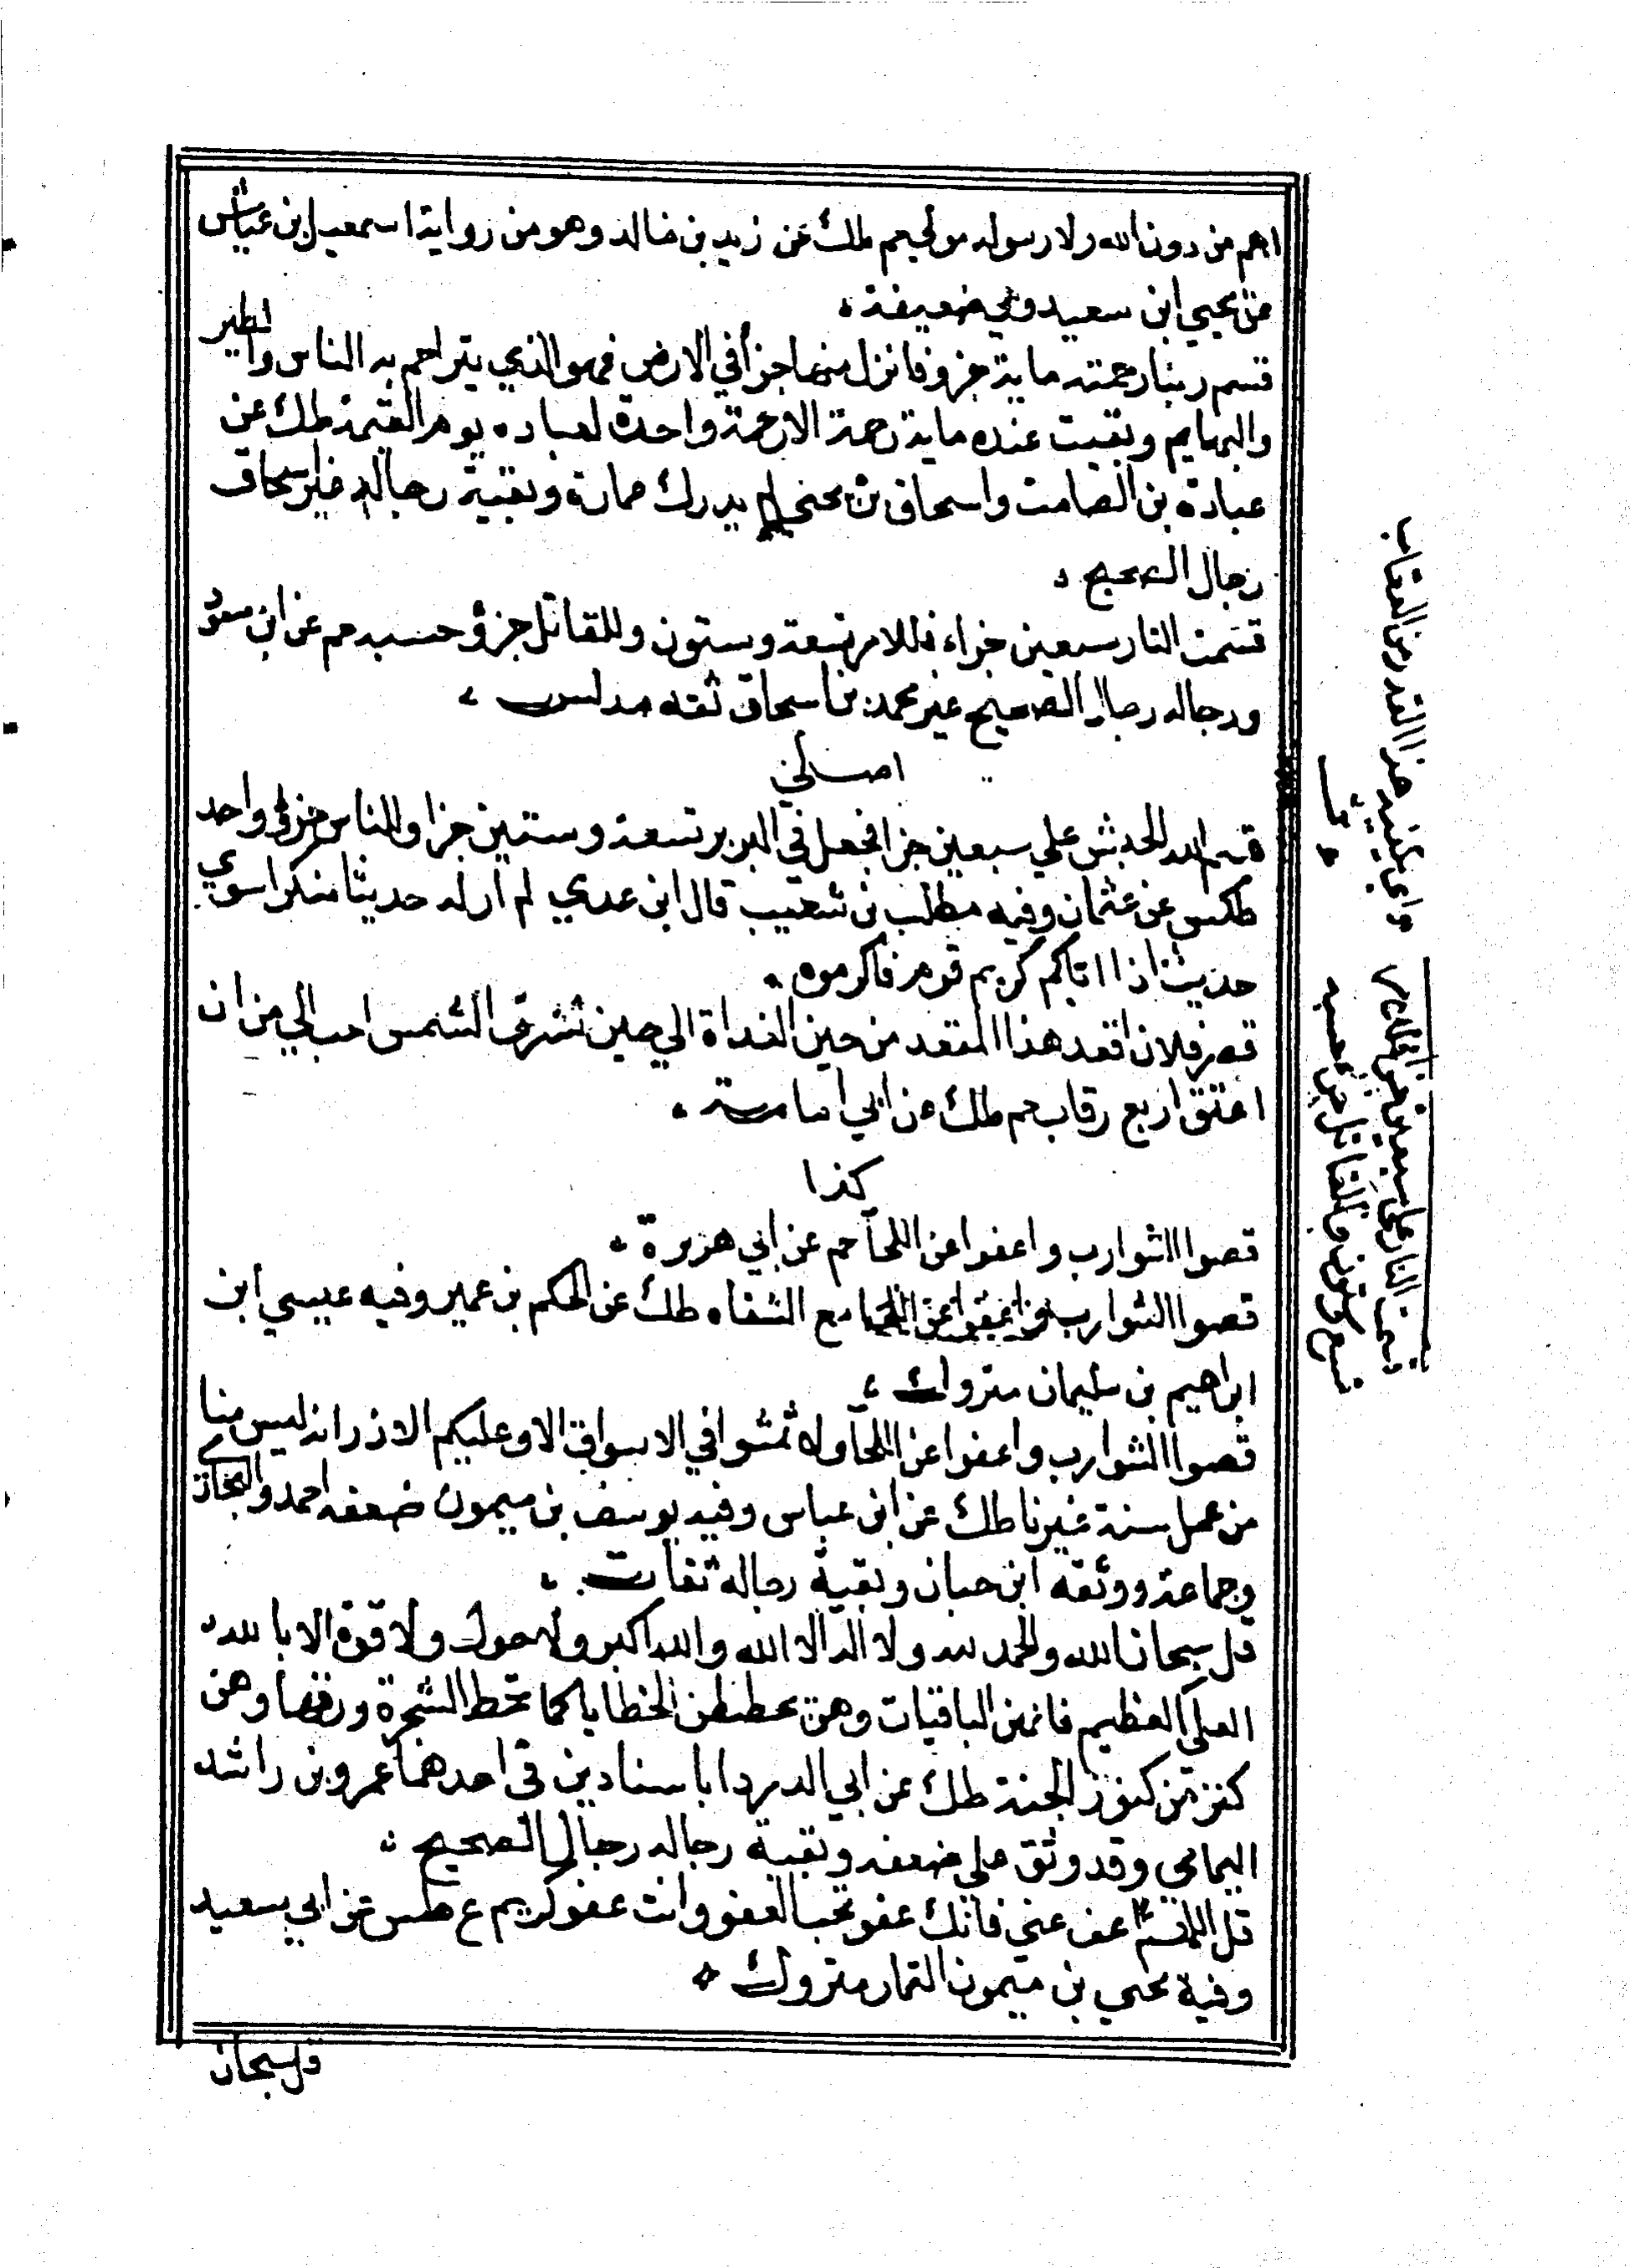 لهم من دون الله ولا رسوله مولي حم طك عن زيد بن خالد وهو من رواية اسمعيل بن عياش
عن يحيي ابن سعيد وهي ضعيفة
قسم ربنا رحمته ماية جزو فانزل منها جزأ في الارض فهو الذي يتراحم به الناس والطير
والبهايم وبقيت عنده ماية رحمة الا رحمة واحدة لعباده يوم القيمة طك عن
عبادة بن الصامت واسحاق بن يحيي لم يدرك عبادة وبقية رجاله غير اسحاق
رجال الصحيح
قسمت النار سبعين جزاء فللامر تسعة وستون وللقاتل جزؤ حسبه حم عن ابن مسعود
ورجاله رجال الصحيح غير محمد بن اسحاق ثقه مدلس
قسم الله الخبث علي سبعين جزا فجعل في البربر تسعة وستين جزا وللناس جزؤ واحد
طكس عن عثمان وفيه مطلب بن شعيب قال ابن عدي لم ار له حديثا منكرا سوي
حديث اذا اتاكم كريم قوم فاكرموه
قص فلان اقعد هذا المقعد من حين الغداة الي حين تشرق الشمس احب الي من ان
اعتق اربع رقاب حم طك عن ابي امامة
كذا
قصوا الشوارب واعفوا عن اللحا حم عن ابي هريرة
قصوا الشوارب مع الشفاه طك عن الحكم بن عمير وفيه عيسي ابن
ابراهيم بن سليمان متروك
قصوا الشوارب واعفوا عن اللحا ولا تمشوا في الاسواق الا وعليكم الازر انه ليس منا
من عمل سنة غيرنا طك عن ابن عباس وفيه يوسف بن ميمون ضعفه احمد والبخاري
وجماعة ووثقه ابن حبان وبقية رجاله ثقات
قل سبحان الله والحمد لله ولا اله الا الله والله اكبر ولا حول ولا قوة الا بالله
العلي العظيم فانهن الباقيات وهن يحططن الخطايا كما تحط الشجرة ورقها وهن
كنز من كنوز الجنة طك عن ابي الدردا باسنادين في احدهما عمرو بن راشد
اليمامي وقد وثق علي ضعفه وبقية رجاله رجال الصحيح
قل اللهم اعف عني فانك عفو تحب العفو وانت عفو كريم ع طس عن ابي سعيد
وفية يحيي بن ميمون التمار متروك
قل سبحان